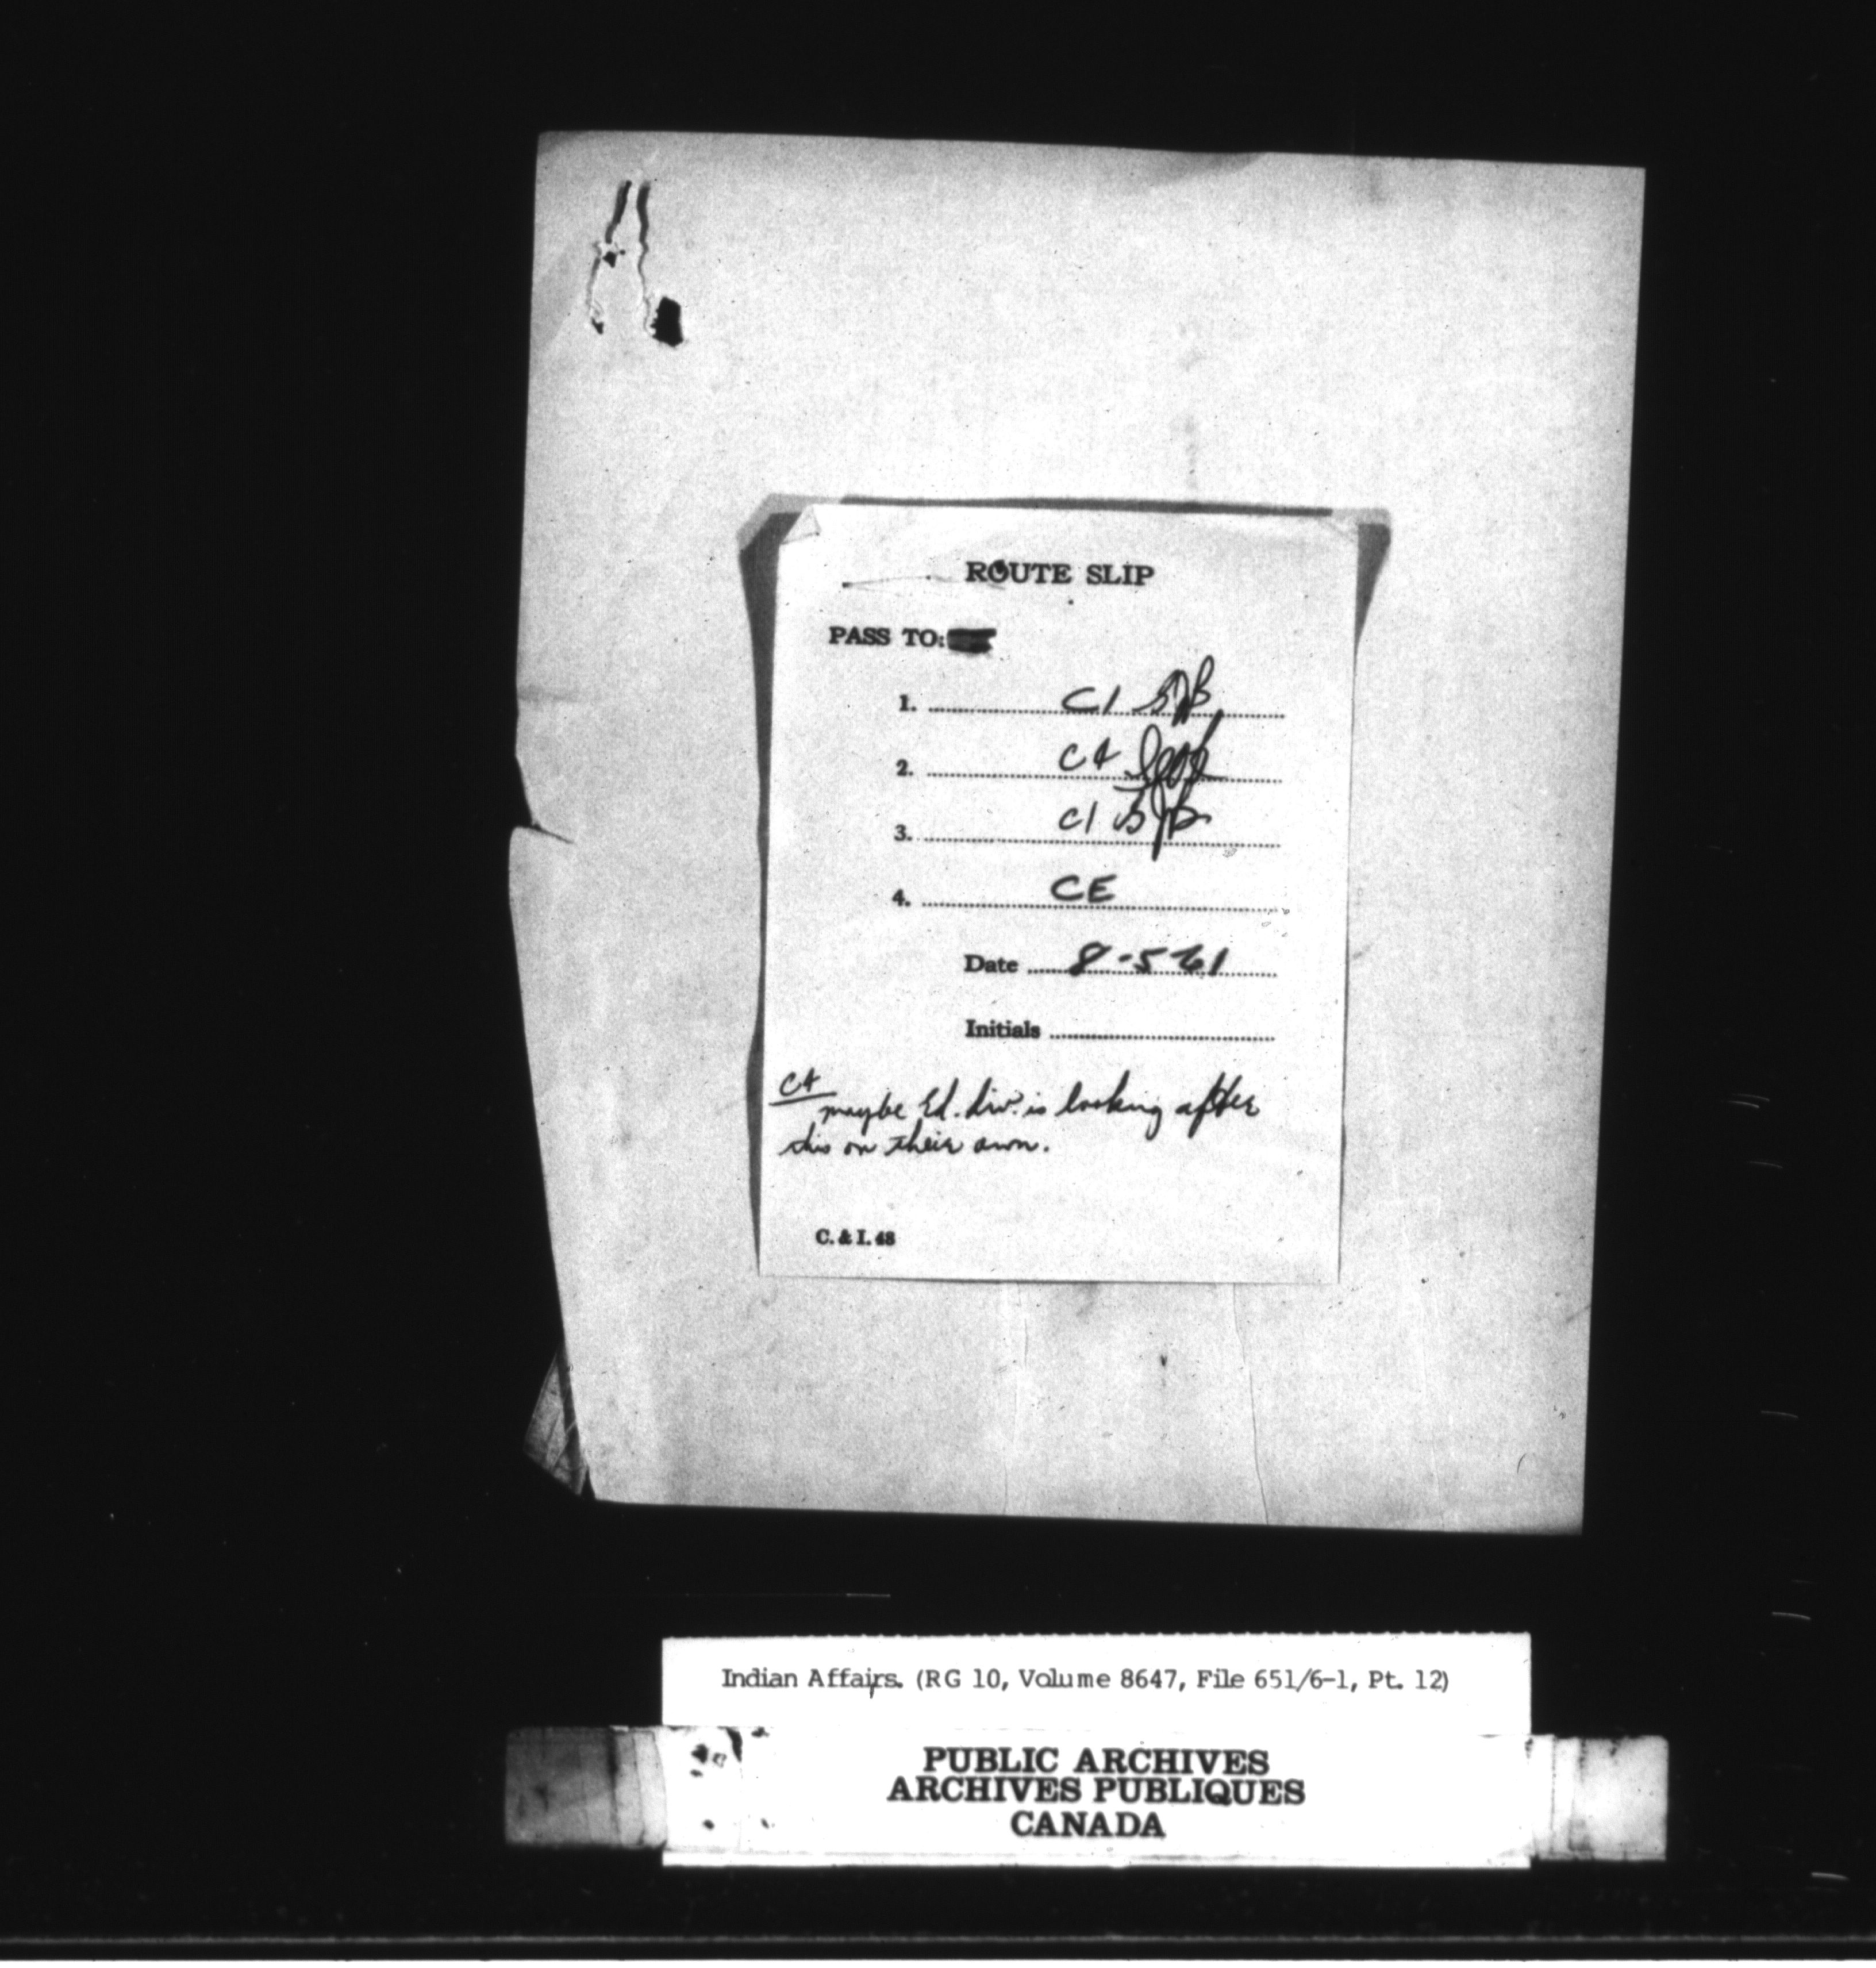 ROUTE SLIP
PASS TO:
1. C1
2. C4
3. C1
4. CE
Date 8-5-61
Initials
C4
maybe Ed. div. is looking after
this on their own.
C. & I. 48
Indian Affairs. (RG 10, Volume 8647, File 651/6-1, Pt. 12)
PUBLIC ARCHIVES
ARCHIVES PUBLIQUES
CANADA